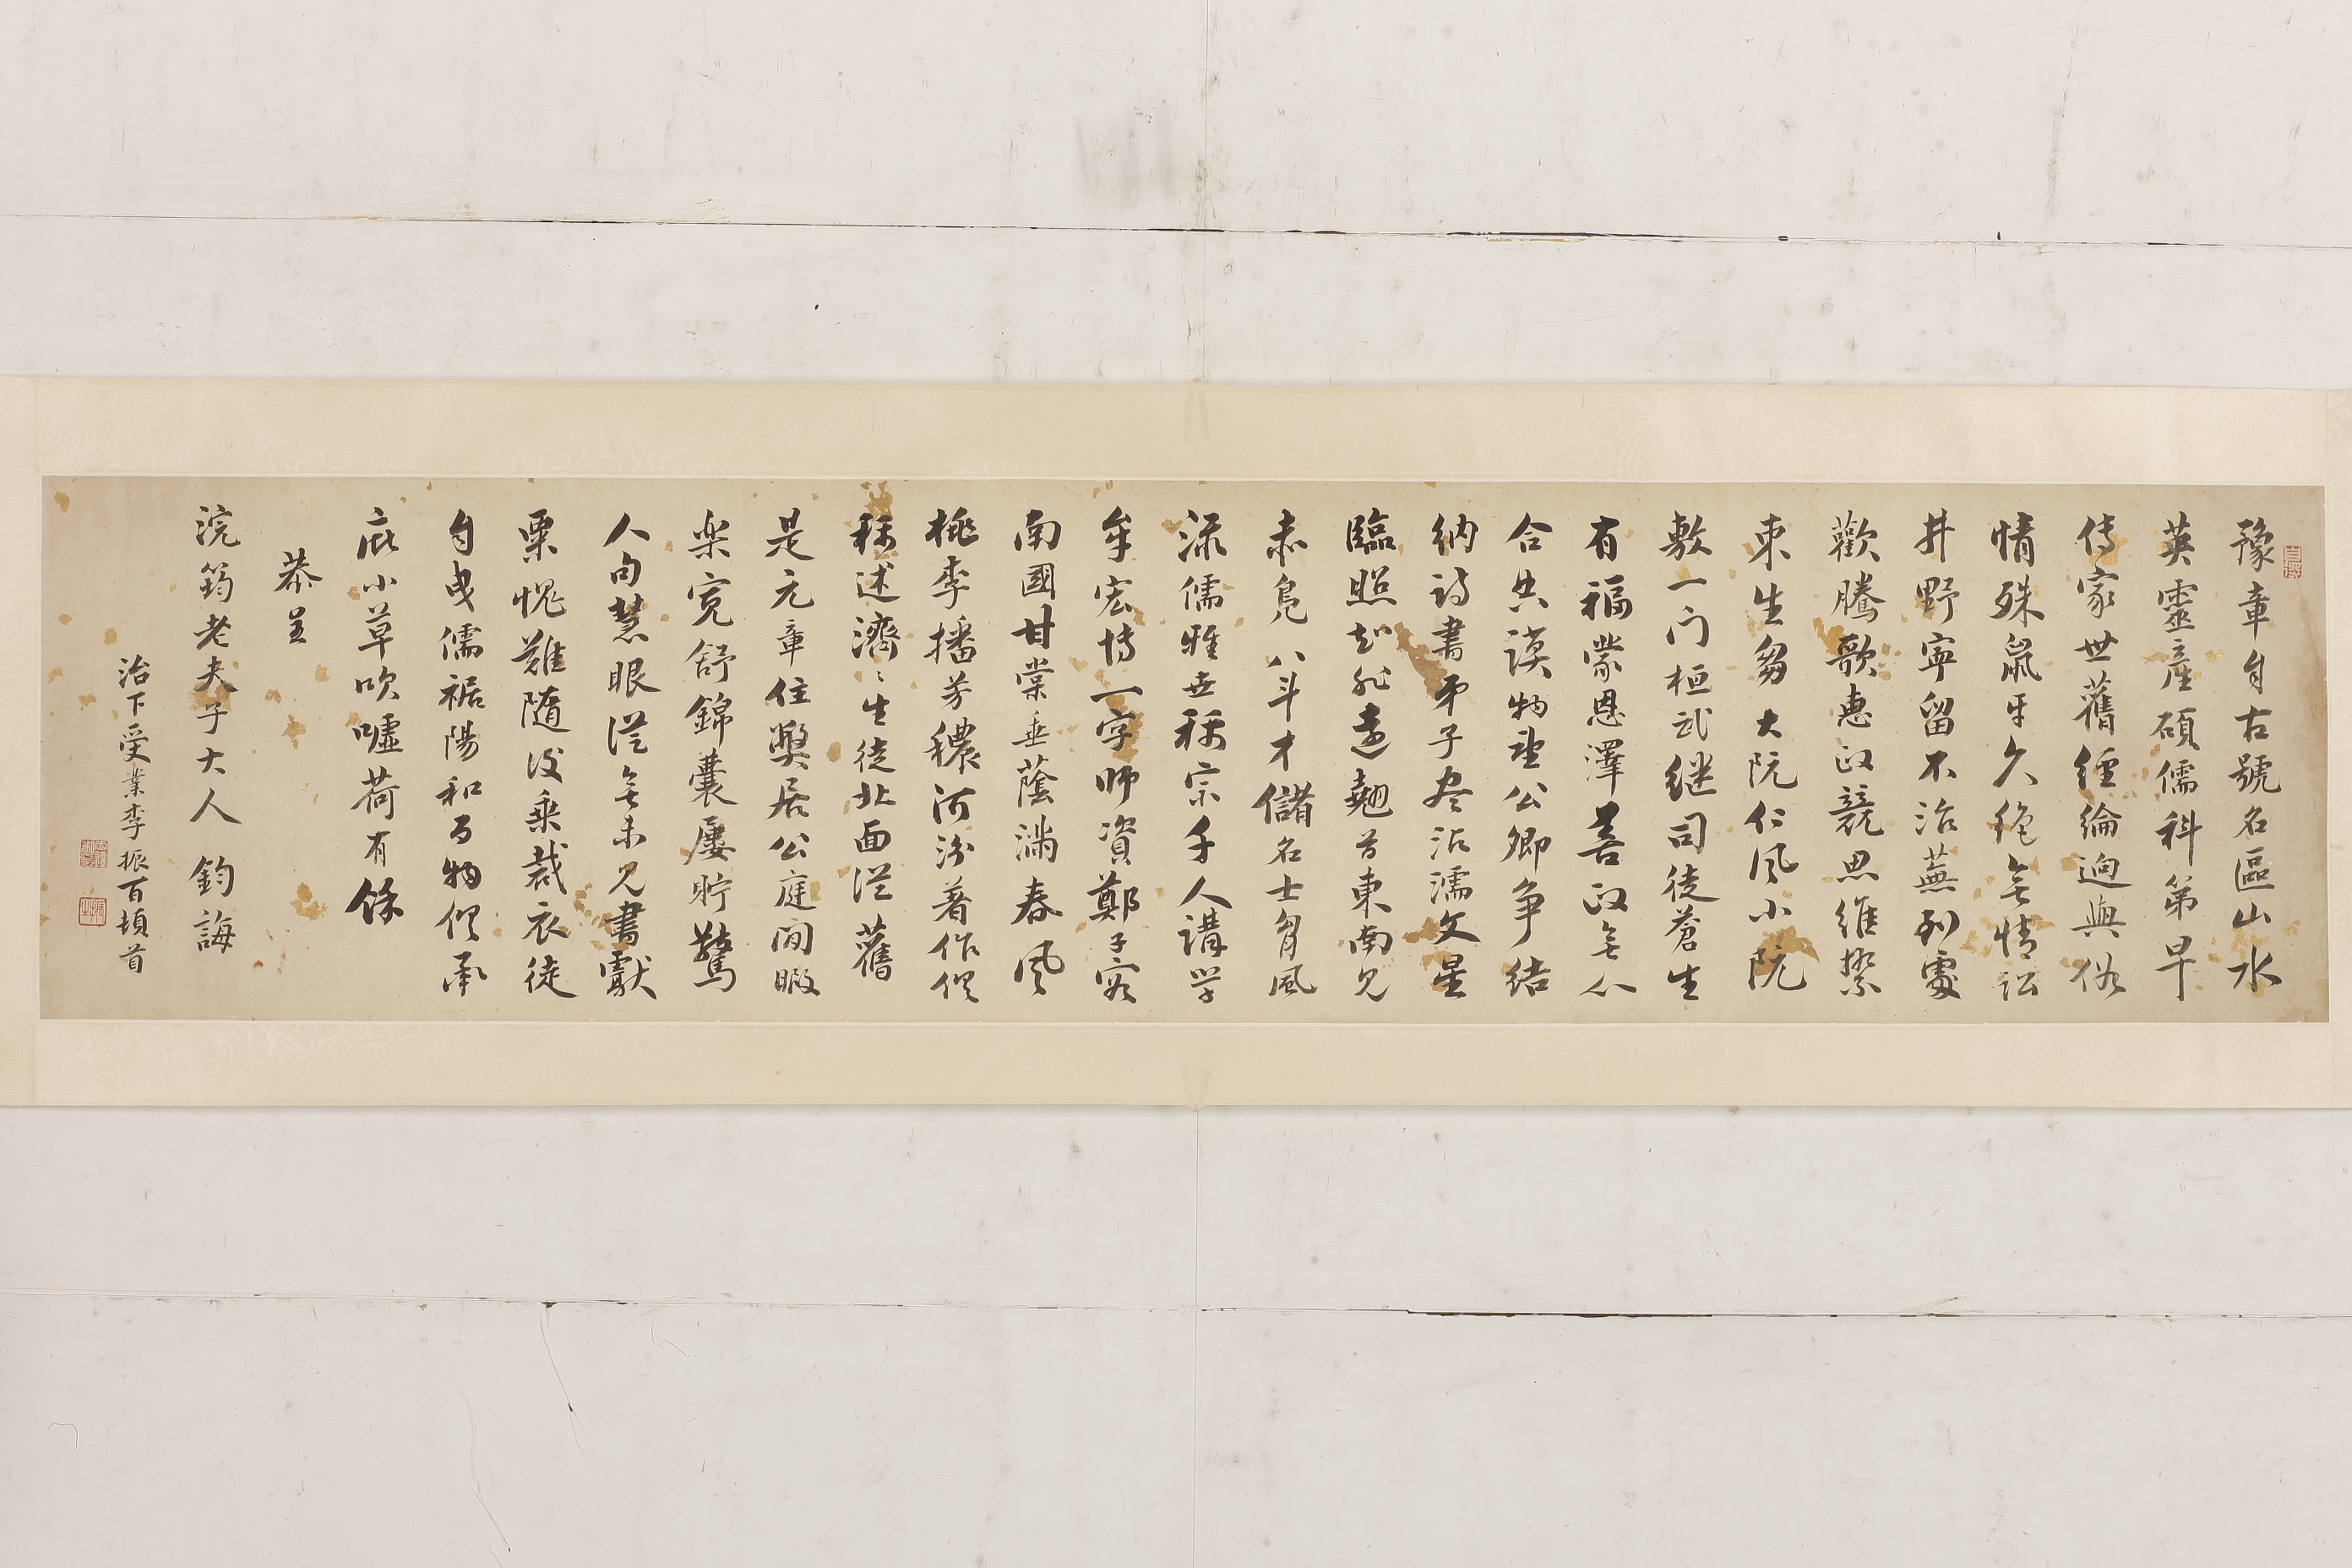 豫章自古號名區山水
英靈產碩儒科第早
傳家世舊經綸迥與俗
情殊鼠牙久絕無情訟
井野寧留不治蕪到處
歡騰歌惠政競思維縶
束生芻大阮仁風小阮
敷一门桓武继司徒蒼生
有福蒙恩澤善政無心
合典謨物望公卿争結
納詩書弟子盡沾濡文星
臨照起
翹首東南見
赤舃八斗才儲名士
風
流儒雅世稱宗千人講学
牟宏博一字師資鄭子寄
南國甘棠垂蔭滿春風
桃李播芳穠河汾著作從
稱述濟〻生徒北面從舊
是元章住
居公庭閒暇
樂寬舒錦囊屢貯驚
人句慧眼從無未見書獻
策愧難隨後乘裁衣徒
自曳儒裾陽和萬物從承
庇小草吹噓荷有餘
恭呈
浣筠老夫子大人 鈞誨
治下受業李振百頓首